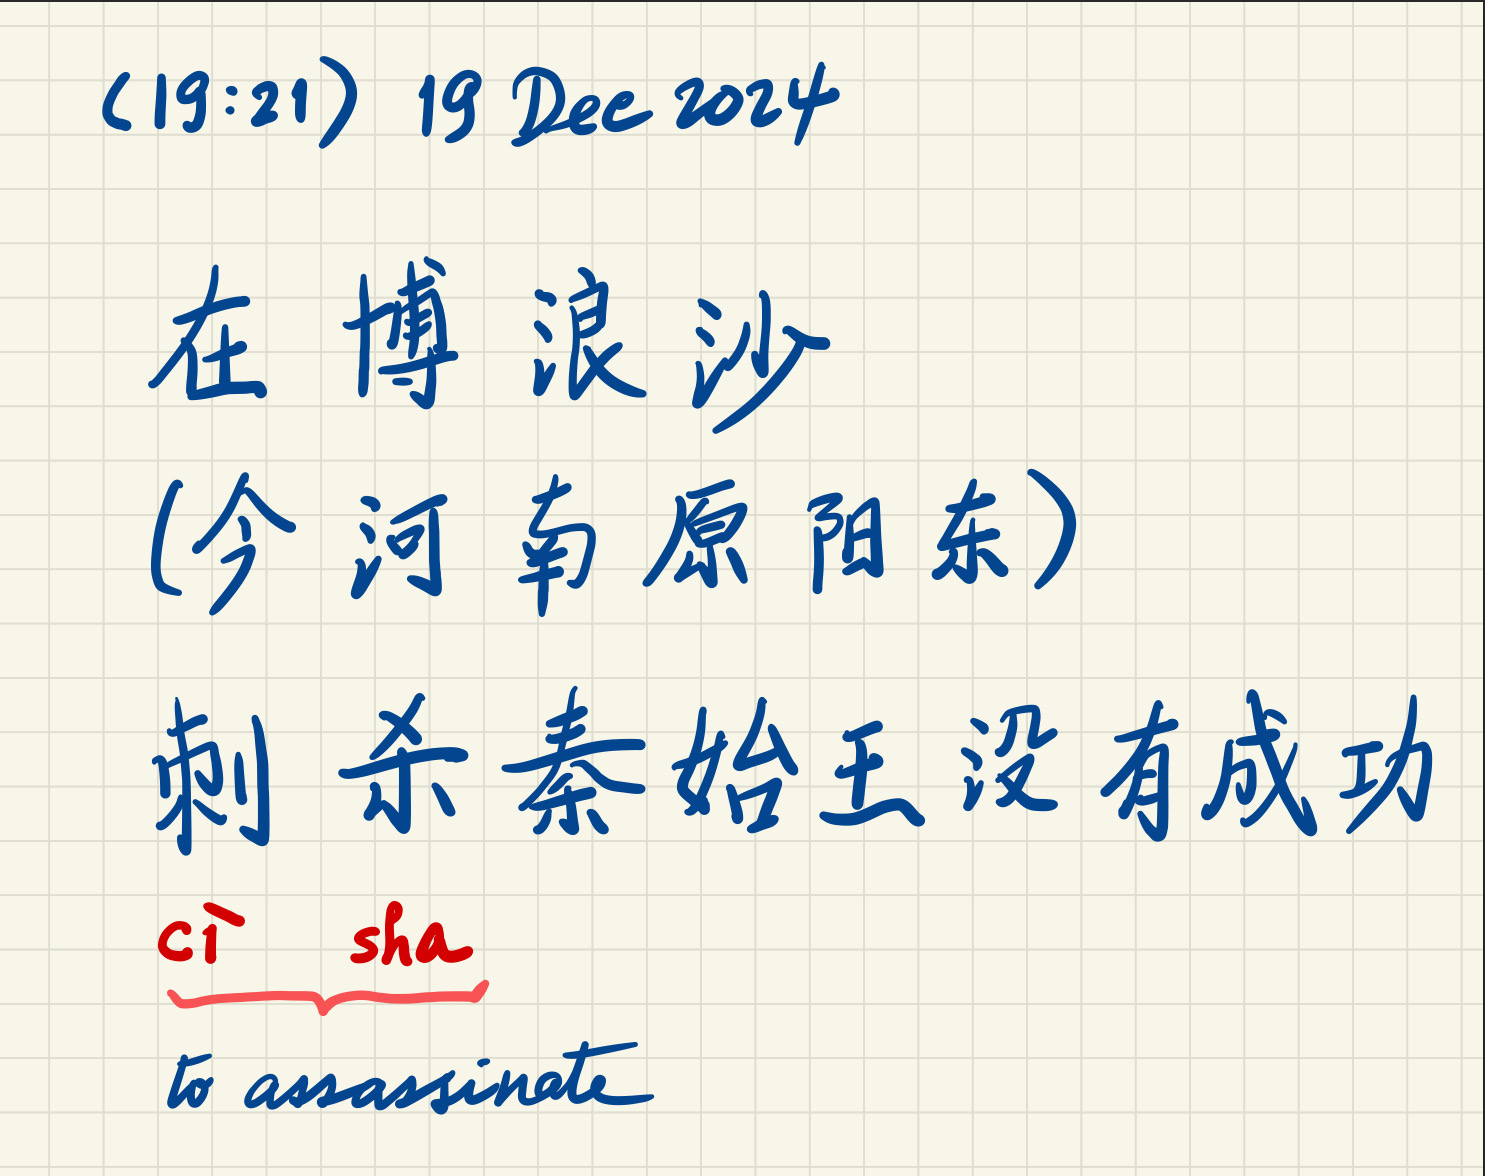 (19:21) 19 Dec 2024
在博浪沙
(今河南原阳东)
刺杀秦始王没有成功
cì sha
to assassinate